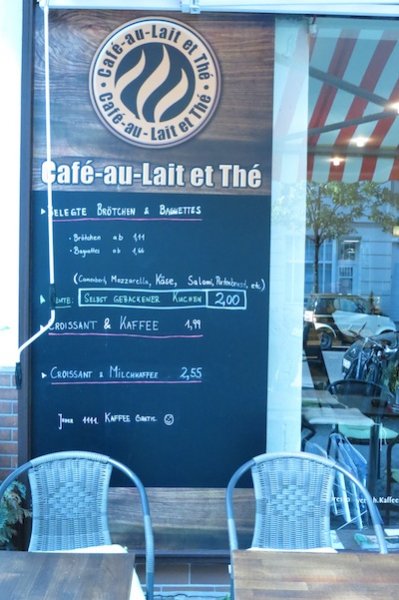 Café-au-Lait et Thé
Café-au-Lait et Thé
Café-au-Lait et Thé
BELEGTE BRÖTCHEN & BAGUETTES
Brötchen ab 1,11
Baguettes ab 1,66
(Camembert, Mozzarella, Käse, Salami, Putenbrust, etc.)
SELBST GEBACKENER KUCHEN 2,00
CROISSANT & KAFFEE 1,99
CROISSANT & MILCHKAFFEE 2,55
JEDER 1111. KAFFEE GRATIS